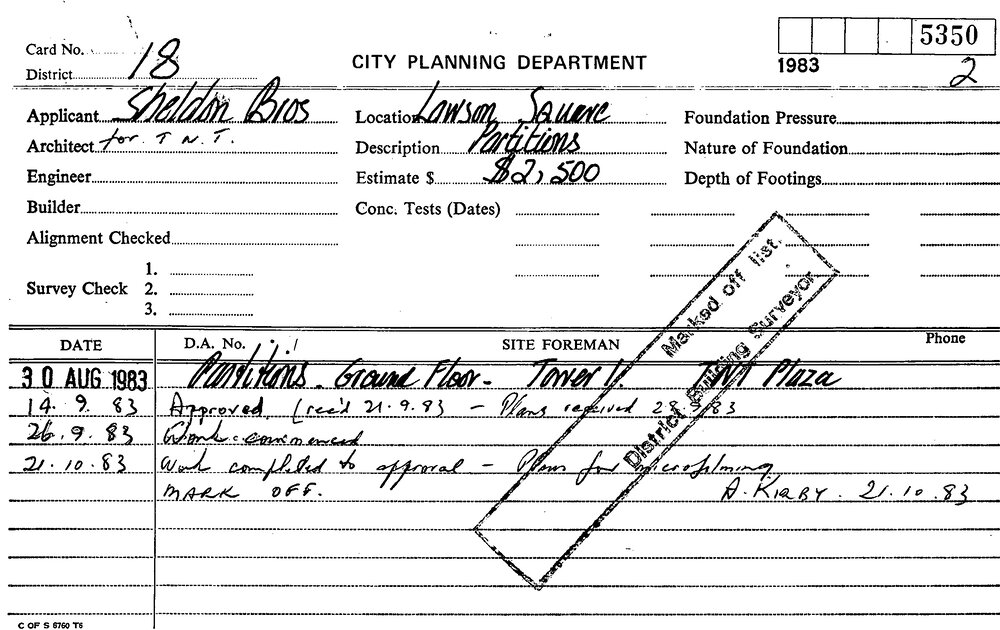 5350
Card No. 18
CITY PLANNING DEPARTMENT
1983 2
District
Applicant Sheldon Bros Location Lawson Square Foundation Pressure
Architect for T.N.T. Description Partitions Nature of Foundation
Engineer Estimate $ $2,500 Depth of Footings
Builder Conc. Tests (Dates)
Alignment Checked
1.
Survey Check 2.
3.
Marked off list.
District Building Surveyor
DATE D.A. No. SITE FOREMAN Phone
30 AUG 1983 Partitions. Ground Floor - Tower 1. TNT Plaza
14. 9. 83 Approved (rec'd 21.9.83 - Plans received 28 9 83
26. 9. 83 Work commenced
21. 10. 83 Work completed to approval - Plans for microfilming
MARK OFF. A. KIRBY. 21.10.83
C OF S 6760 T6